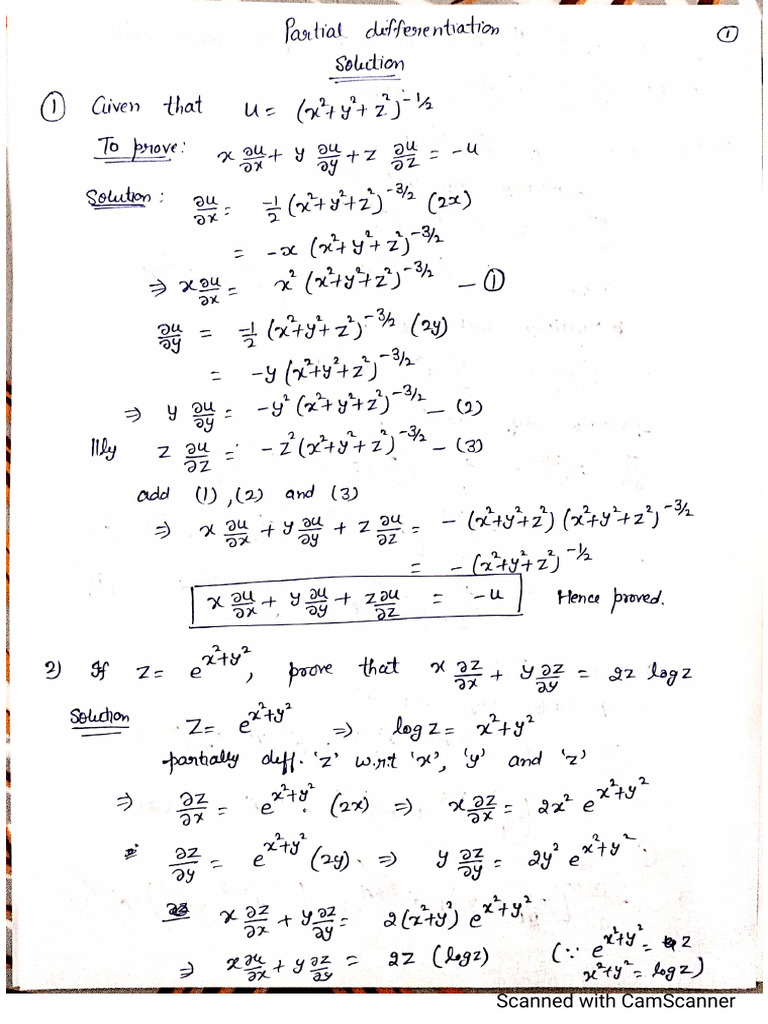 Partial differentiation ①
Solution
① Given that u = (x²+y²+z²)^-1/2
To prove: x ∂u/∂x + y ∂u/∂y + z ∂u/∂z = -u
Solution: ∂u/∂x = -1/2 (x²+y²+z²)^-3/2 (2x)
= -x (x²+y²+z²)^-3/2
⇒ x ∂u/∂x = x² (x²+y²+z²)^-3/2 — ①
∂u/∂y = -1/2 (x²+y²+z²)^-3/2 (2y)
= -y (x²+y²+z²)^-3/2
⇒ y ∂u/∂y = -y² (x²+y²+z²)^-3/2 — (2)
lllly z ∂u/∂z = -z² (x²+y²+z²)^-3/2 — (3)
add (1), (2) and (3)
⇒ x ∂u/∂x + y ∂u/∂y + z ∂u/∂z = -(x²+y²+z²) (x²+y²+z²)^-3/2
= -(x²+y²+z²)^-1/2
x ∂u/∂x + y ∂u/∂y + z ∂u/∂z = -u Hence proved.
2) If z = e^x²+y², prove that x ∂z/∂x + y ∂z/∂y = 2z log z
Solution z = e^x²+y² ⇒ log z = x²+y²
partially diff. 'z' w.r.t 'x', 'y' and 'z'
⇒ ∂z/∂x = e^x²+y² (2x) ⇒ x ∂z/∂x = 2x² e^x²+y²
∂z/∂y = e^x²+y² (2y) ⇒ y ∂z/∂y = 2y² e^x²+y²
x ∂z/∂x + y ∂z/∂y = 2(x²+y²) e^x²+y²
⇒ x ∂z/∂x + y ∂z/∂y = 2z (log z) (∵ e^x²+y² = z
x²+y² = log z)
Scanned with CamScanner